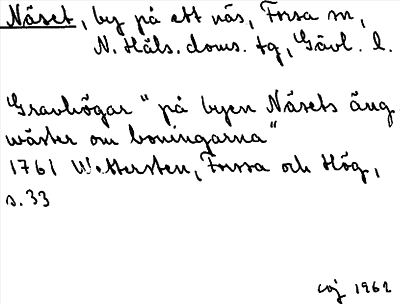 Näset, by på ett näs, Forsa sn,
N. Häls. doms. tg, Gävl. l.
Gravhögar "på byen Näsets äng
wäster om boningarna"
1761 Wettersten, Forssa och Hög,
s. 33
1962